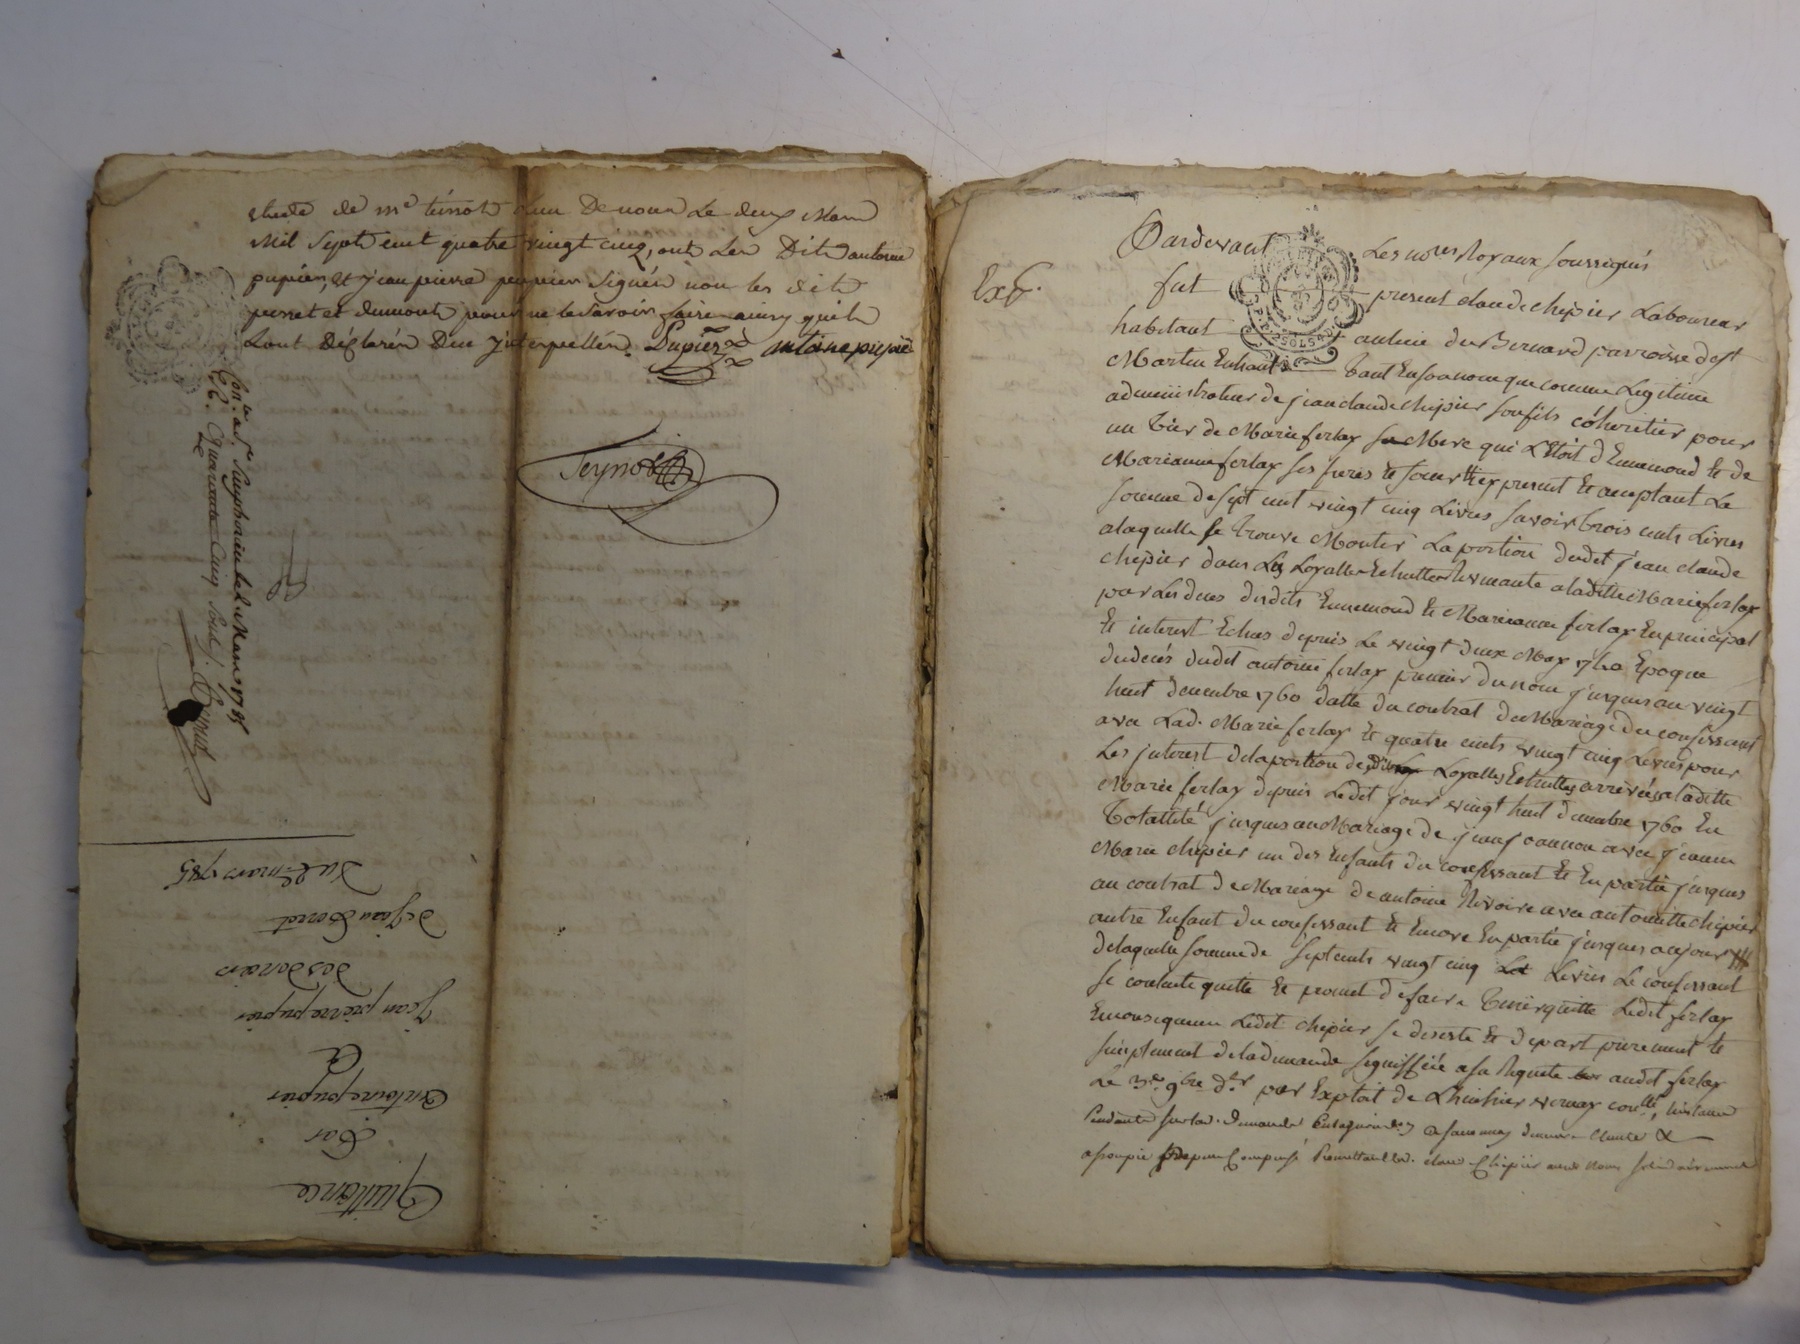 etude de me teinot L'un De nous Le deux Mars
Mil Sept cent quatre vingt cinq, ont Les Dits antoine
pupier, et jean pierre pupier signés non les dits
perret et dumont pour ne le savoir faire ainsy quils
L'ont Déclarés Due jnterpellés. Pupier antoine pupie
Teynot
Con.lé a St Simphorien le 2 Mars 1785
R. Quarante Cinq Sols
Quittance
Par
Antoine pupier
&
Jean pierre pupier
des Deniers
de Jean Perret
Du 2e mars 1785
Exp.
Pardevant Les nores Royaux soussignés
fut present claude chipier Laboureur
habitant au lieu du Bernard parroisse de St
Martin Enhaut Tant En son nom que comme Legitime
administrateur de jean claude chipier son fils cohéritier pour
un Tier de Marie ferlay sa Mere qui L'Etoit d'Ennemond et de
Marianne ferlay ses freres et soeur present et acceptant La
somme de sept cent vingt cinq Livres savoir trois cents Livres
a laquelle se trouve Monter La portion dudit jean claude
chipier dans Les Loyalles Echuttes a ladite Marie ferlay
par Les deces desdits Ennemond et Marianne ferlay En principal
et interest Echus depuis Le vingt deux May Epoque
du decés dudit antoine ferlay premier du nom jusques au vingt
huit decembre 1760 datte du contrat de Mariage du confessant
avec Lad. Marie ferlay et quatre cents vingt cinq Livres pour
Les jnterest de la portion des Loyalles Echuttes arrivées a ladite
Marie ferlay depuis Ledit jour vingt huit decembre 1760 En
Totallité jusques au Mariage de jean joannon avec jeanne
Marie chipier un des Enfants du confessant et En partie jusques
au contrat de Mariage de antoine Rivoire avec antoinette chipier
autre Enfant du confessant et Encore En partie jusques a ce jour
de laquelle somme de sept cents vingt cinq Livres Le confessant
se contente quitte et promet de faire Tenir quitte Ledit ferlay
En consequence Ledit chipier se desiste et depart purement et
simplement de la demande signiffiée a sa Requete audit ferlay
Le 9bre der par Exploit de L'huissier collé, L'instance
Pendante sur lad. Demande demeure Eteinte &
assoupie Compensé Promettant led. claude Chipier